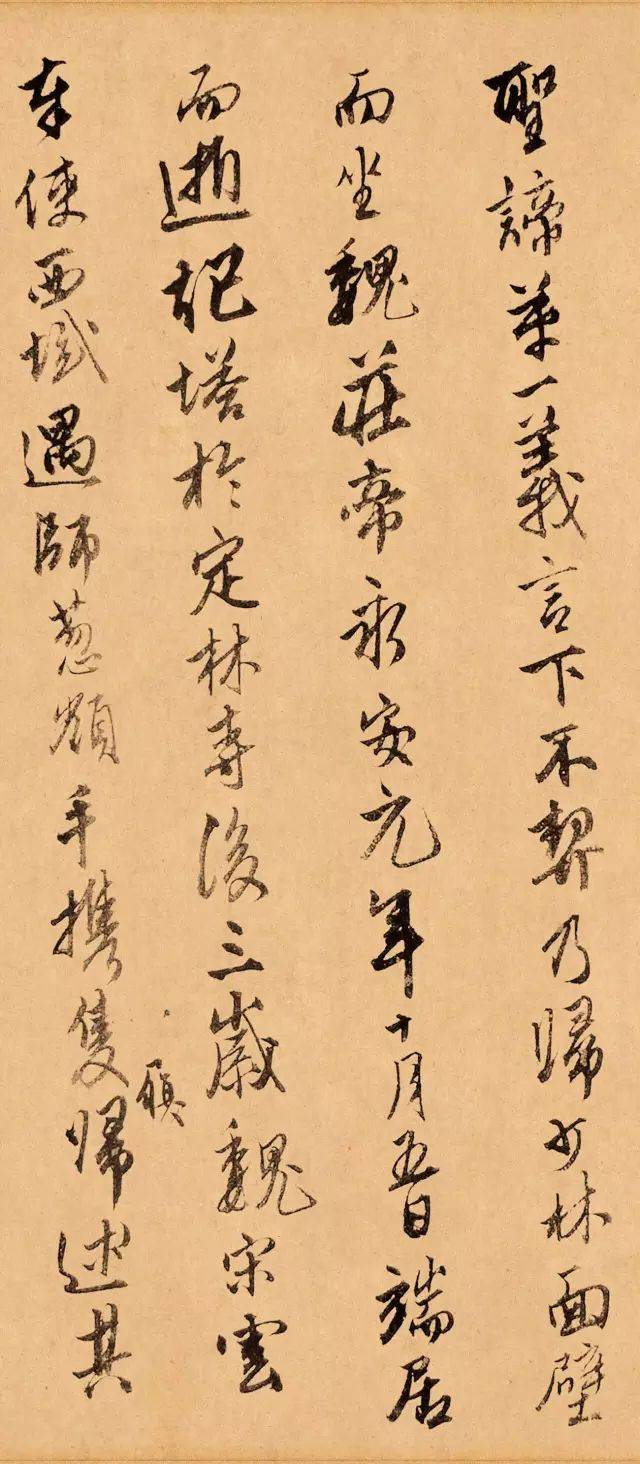 聖諦第一義言下不契乃歸少林面壁
而坐魏莊帝永安元年十月五日端居
而逝起塔於定林寺後三歲魏宋雲
奉使西域遇師葱嶺手攜隻歸述其
履